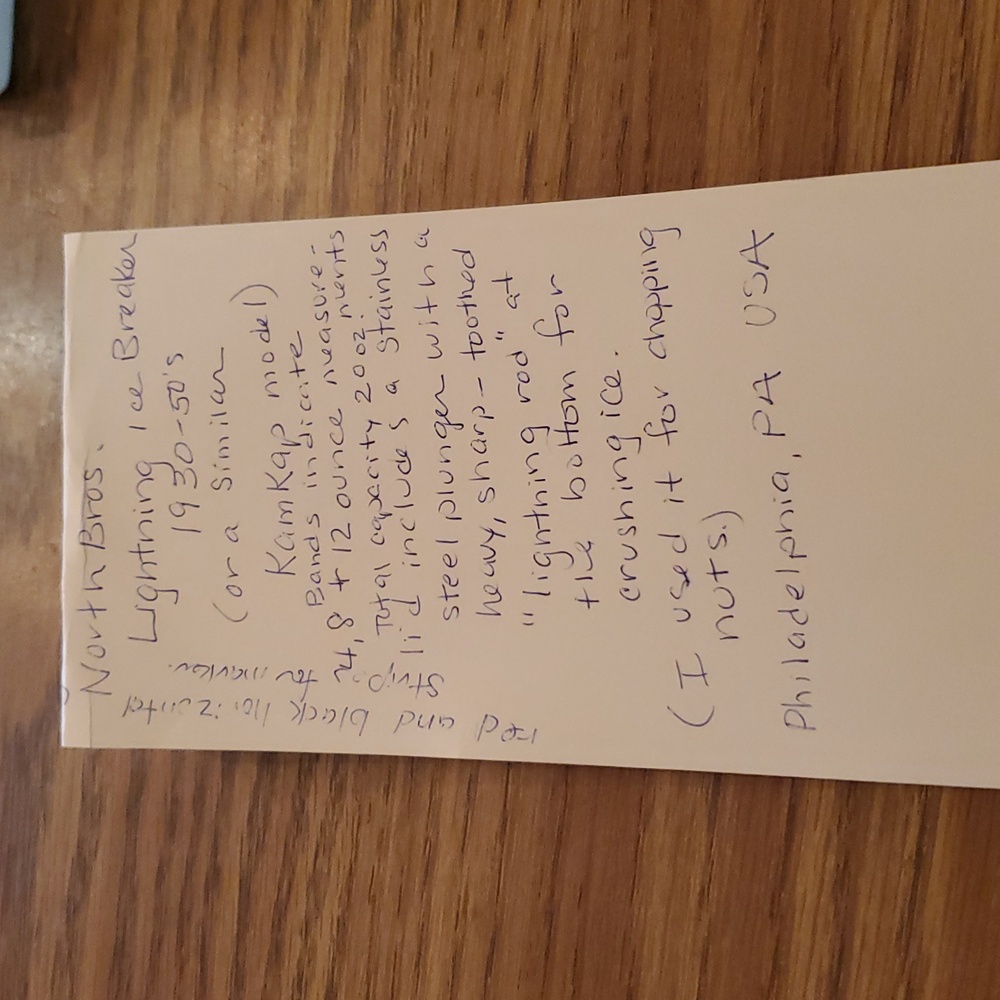 North Bros.
Lightning Ice Breaker
1930-50's
(or a similar
KamKap model)
Bands indicate
4, 8 + 12 ounce measure-
ments
Total capacity 20oz.
lid includes a stainless
steel plunger with a
heavy, sharp-toothed
"lightning rod" at
the bottom for
crushing ice.
(I used it for chopping
nuts.)
Philadelphia, PA USA
red and black horizontal
stripe for marker.